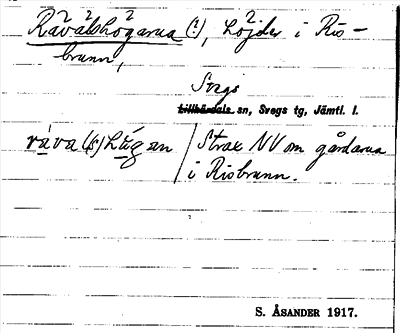 Rävalshögarna (:), Löjder i Ris-
brunn,
Svegs
Lillhärdals sn, Svegs tg, Jämtl. l.
Strax NV om gårdarna
i Risbrunn.
S. ÅSANDER 1917.